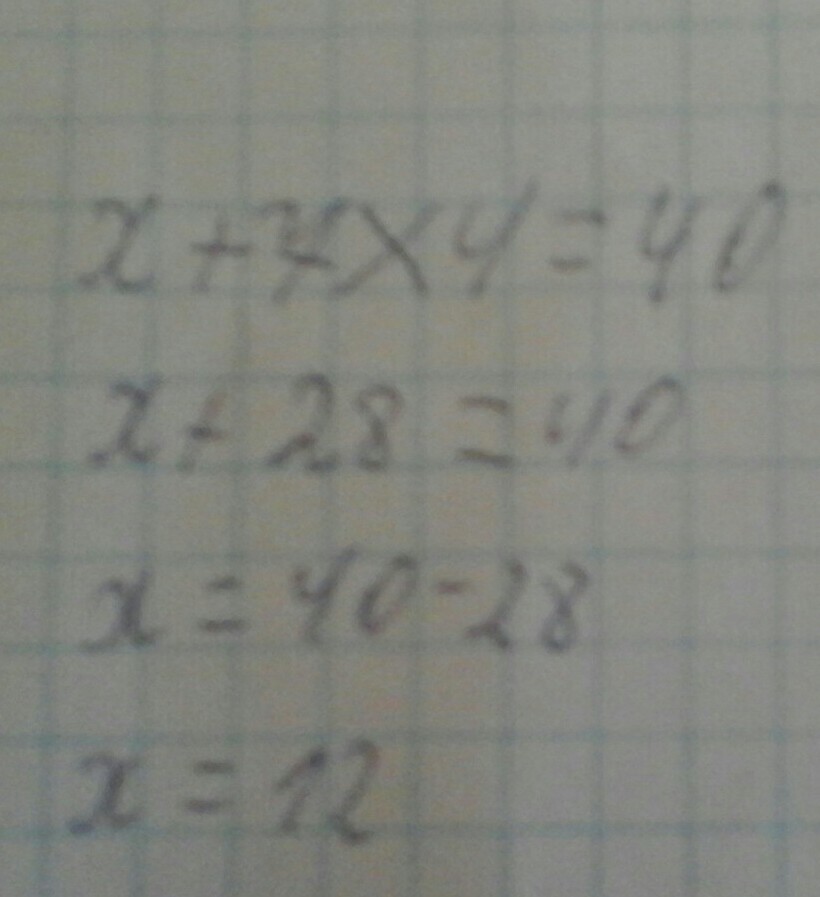 x + 7 × 4 = 40
x + 28 = 40
x = 40 - 28
x = 12